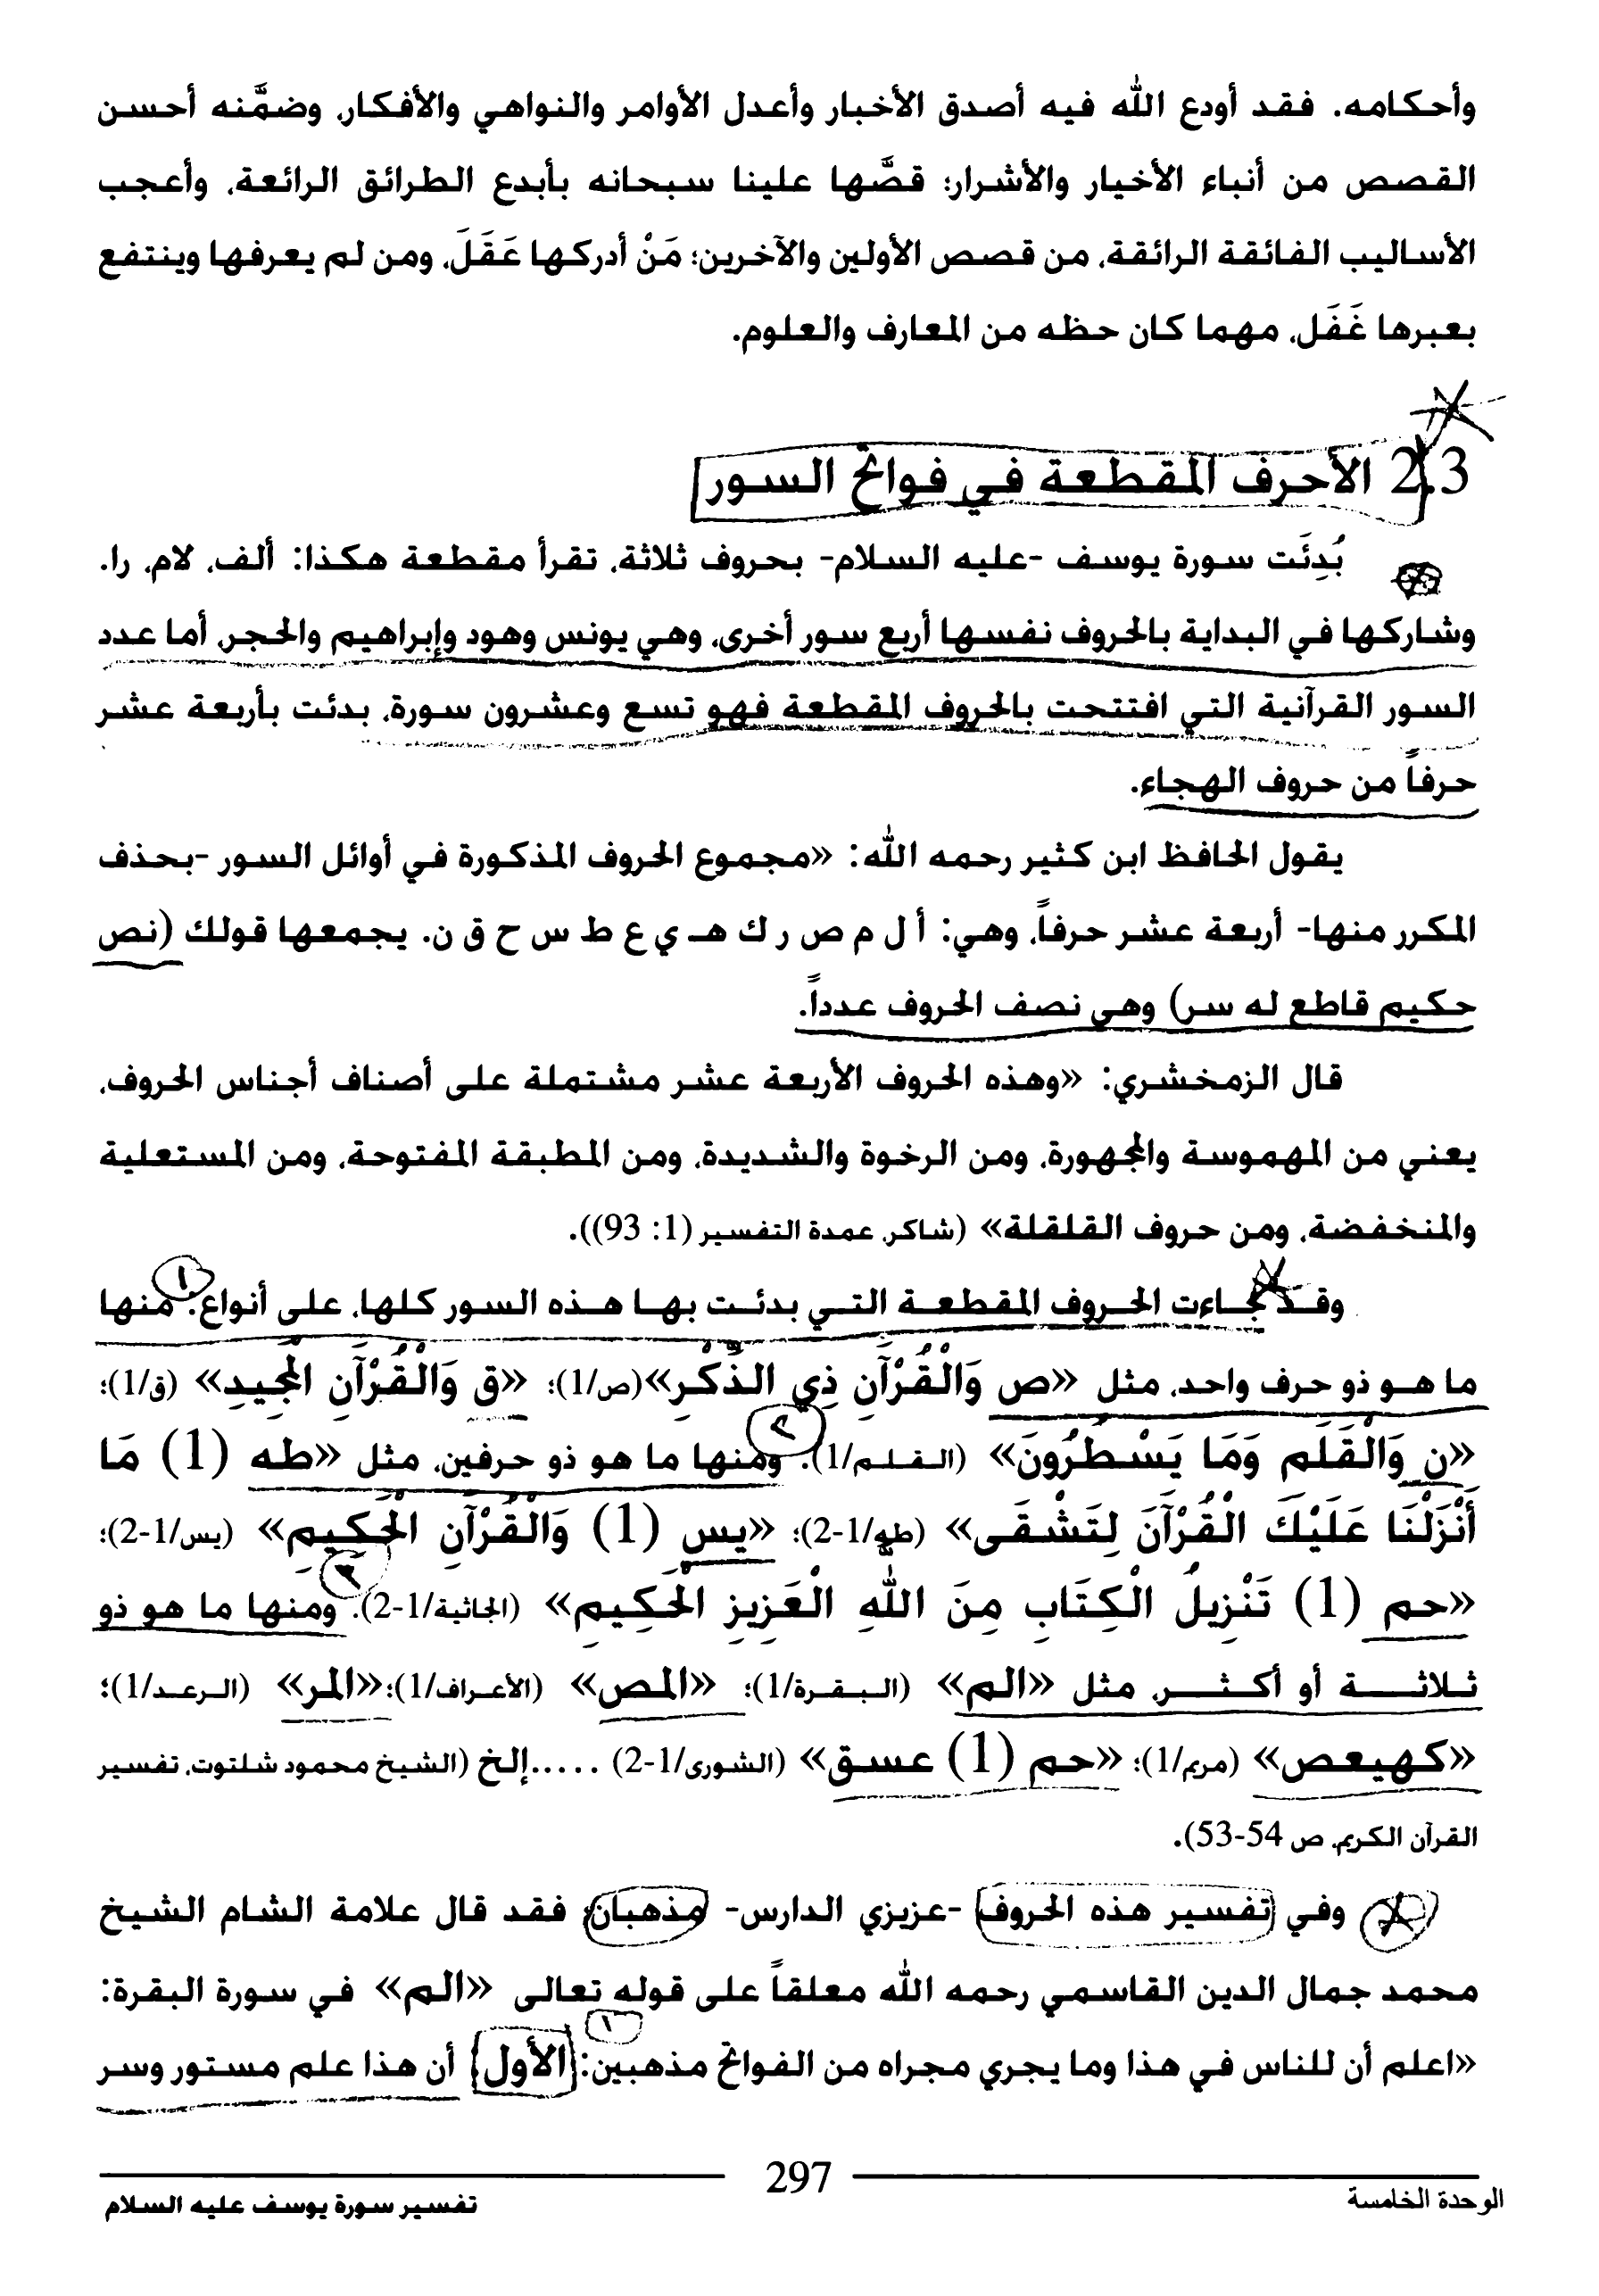 وأحكامه. فقد أودع الله فيه أصدق الأخبار وأعدل الأوامر والنواهي والأفكار، وضمَّنه أحسن
القصص من أنباء الأخيار والأشرار؛ قصَّها علينا سبحانه بأبدع الطرائق الرائعة، وأعجب
الأساليب الفائقة الرائقة، من قصص الأولين والآخرين؛ مَنْ أدركها عَقَلَ، ومن لم يعرفها وينتفع
بعبرها غَفَل، مهما كان حظه من المعارف والعلوم.
2.3 الأحرف المقطعة في فواتح السور
بُدِئَت سورة يوسف -عليه السلام- بحروف ثلاثة، تقرأ مقطعة هكذا: ألف، لام، را.
وشاركها في البداية بالحروف نفسها أربع سور أخرى، وهي يونس وهود وإبراهيم والحجر، أما عدد
السور القرآنية التي افتتحت بالحروف المقطعة فهو تسع وعشرون سورة، بدئت بأربعة عشر
حرفاً من حروف الهجاء.
يقول الحافظ ابن كثير رحمه الله: «مجموع الحروف المذكورة في أوائل السور -بحذف
المكرر منها- أربعة عشر حرفاً، وهي: أ ل م ص ر ك هـ ي ع ط س ح ق ن. يجمعها قولك (نص
حكيم قاطع له سر) وهي نصف الحروف عدداً.
قال الزمخشري: «وهذه الحروف الأربعة عشر مشتملة على أصناف أجناس الحروف،
يعني من المهموسة والمجهورة، ومن الرخوة والشديدة، ومن المطبقة المفتوحة، ومن المستعلية
والمنخفضة، ومن حروف القلقلة» (شاكر، عمدة التفسير (1: 93)).
١
وقد جاءت الحروف المقطعة التي بدئت بها هذه السور كلها، على أنواع: منها
ما هو ذو حرف واحد، مثل «ص وَالْقُرْآنِ ذِي الذِّكْرِ»(ص/1)؛ «ق وَالْقُرْآنِ الْمَجِيدِ» (ق/1)؛
٢
«ن وَالْقَلَمِ وَمَا يَسْطُرُونَ» (القلم/1). ومنها ما هو ذو حرفين، مثل «طه (1) مَا
أَنْزَلْنَا عَلَيْكَ الْقُرْآنَ لِتَشْقَى» (طه/1-2)؛ «يس (1) وَالْقُرْآنِ الْحَكِيمِ» (يس/1-2)؛
٣
«حم (1) تَنْزِيلُ الْكِتَابِ مِنَ اللهِ الْعَزِيزِ الْحَكِيمِ» (الجاثية/1-2). ومنها ما هو ذو
ثلاثة أو أكثر، مثل «الم» (البقرة/1)؛ «المص» (الأعراف/1)؛«المر» (الرعد/1)؛
«كهيعص» (مريم/1)؛ «حم (1) عسق» (الشورى/1-2) .....إلخ (الشيخ محمود شلتوت، تفسير
القرآن الكريم، ص 54-53).
وفي تفسير هذه الحروف -عزيزي الدارس- مذهبان؛ فقد قال علامة الشام الشيخ
محمد جمال الدين القاسمي رحمه الله معلقاً على قوله تعالى «الم» في سورة البقرة:
١
«اعلم أن للناس في هذا وما يجري مجراه من الفواتح مذهبين: الأول أن هذا علم مستور وسر
297
الوحدة الخامسة
تفسير سورة يوسف عليه السلام